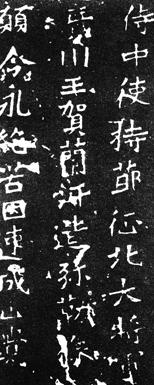 侍中使持節征北大將軍
廣川王賀蘭汗造彌勒像
願令永絕苦因速成正覺